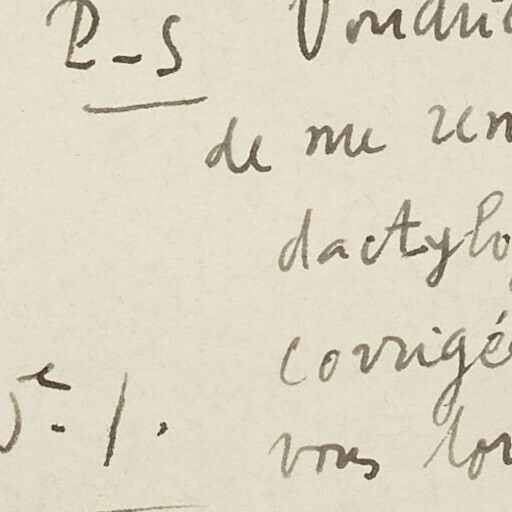 P-S Voudri
de me ren
dactylo
corrigé
vous lor